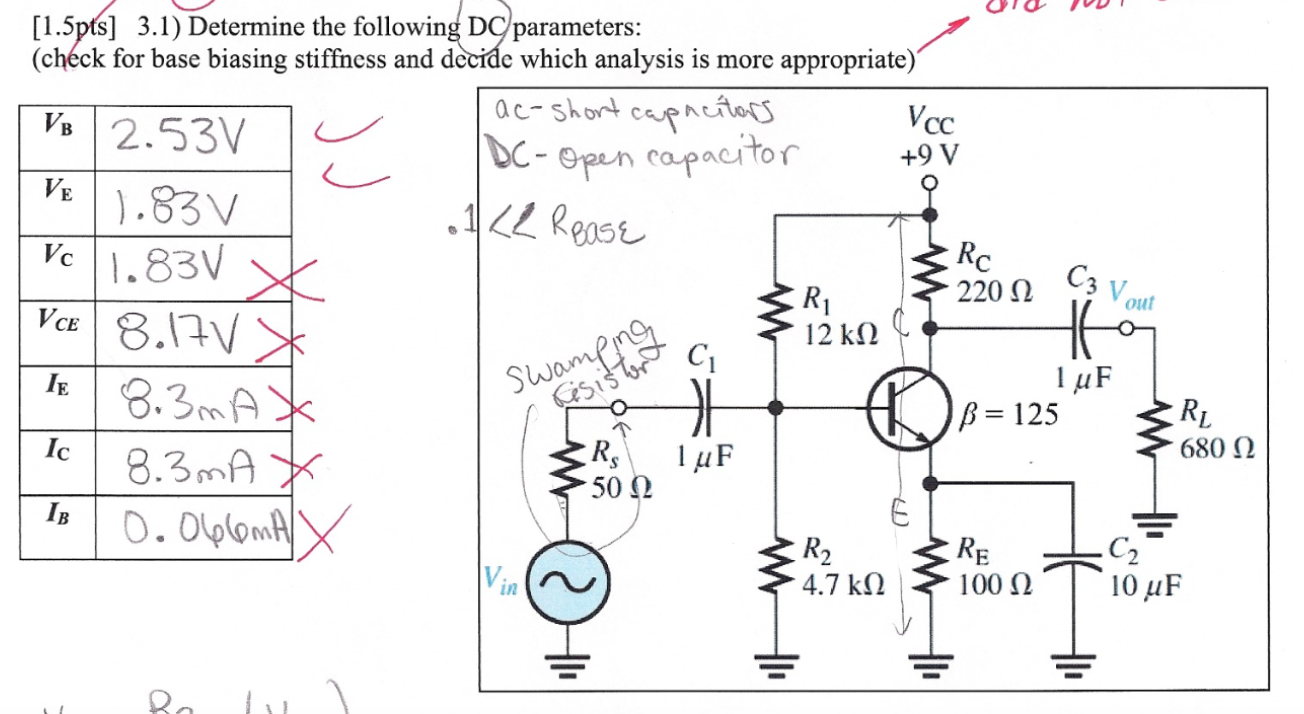 did not
[1.5pts] 3.1) Determine the following DC parameters:
(check for base biasing stiffness and decide which analysis is more appropriate)
VB 2.53V
VE 1.83V
VC 1.83V
VCE 8.17V
IE 8.3mA
IC 8.3mA
IB 0.066mA
ac-short capacitors
DC-open capacitor
.1<< RBASE
VCC
+9 V
RC
220 Ω
C3
Vout
R1
12 kΩ
C
1 μF
swamping
resistor
C1
β = 125
RL
680 Ω
Rs
50 Ω
1 μF
E
R2
4.7 kΩ
RE
100 Ω
C2
10 μF
Vin